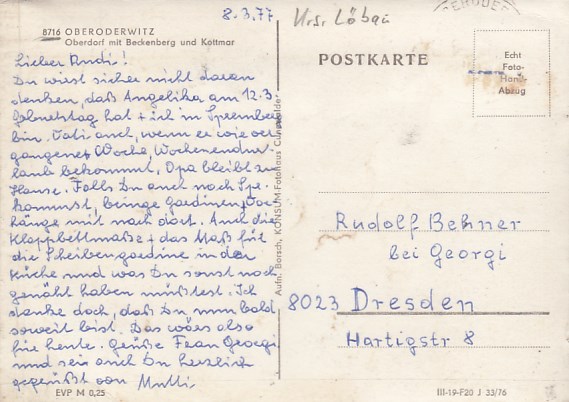 8.3.77
Krs. Löbau
8716 OBERODERWITZ
Oberdorf mit Beckenberg und Kottmar
POSTKARTE
Echt
Foto-
Hand-
Abzug
Lieber Rudi!
Du wirst sicher nicht daran
denken, daß Angelika am 12.3.
Geburtstag hat + ich in Spremberg
bin. Vati auch, wenn er wie ver
gangene Woche, Wochenendur-
laub bekommt. Opa bleibt zu
Hause. Falls Du auch nach Spre.
kommst, bringe Gardinen + Vor
hänge mit nach dort. Auch die
Klappbettmaße + das Maß für
die Scheibengardine in der
Küche und was Du sonst noch
genäht haben müßtest. Ich
denke doch, daß Du nun bald
soweit bist. Das wäres also
für heute. Grüße Frau Georgi
und sei auch Du herzlich
gegrüßt von Mutti.
Aufn: Borsch, KONSUM-Fotohaus Cunewalde
Rudolf Behner
bei Georgi
8023 Dresden
Hartigstr 8
EVP M 0,25
III-19-F20 J 33/76